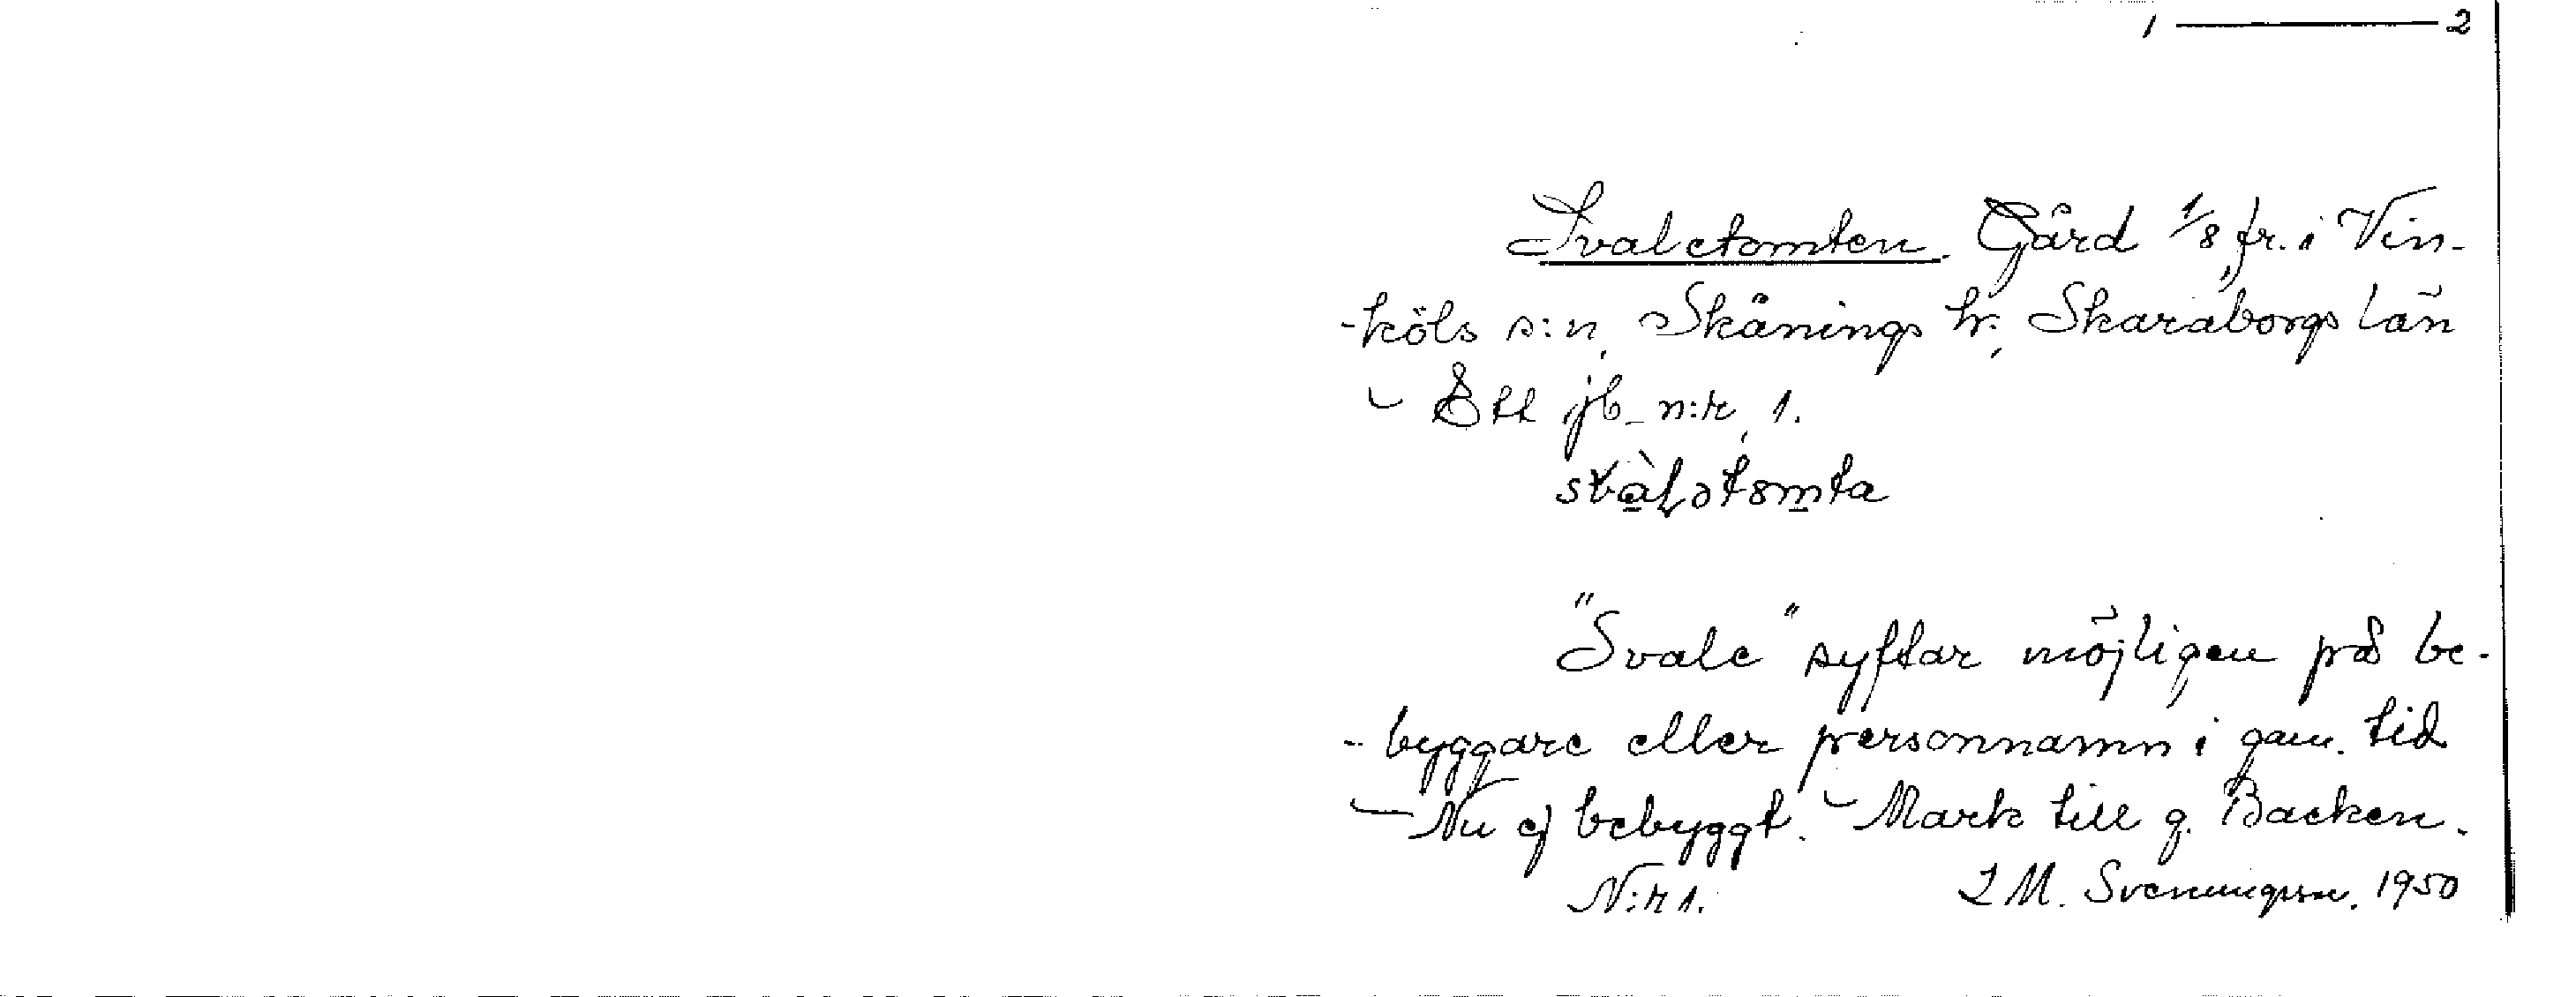 1 — 2
Svaletomten. Gård 1/8 fr. i Vin-
-köls s:n, Skånings hr., Skaraborgs län
- Ett jb-n:r, 1.
svàlətomta
"Svale" syftar möjligen på be-
- byggare eller personnamn i gam. tid
- Nu ej bebyggt. - Mark till g. Backen.
N:r 1. I M. Svenningsson. 1950